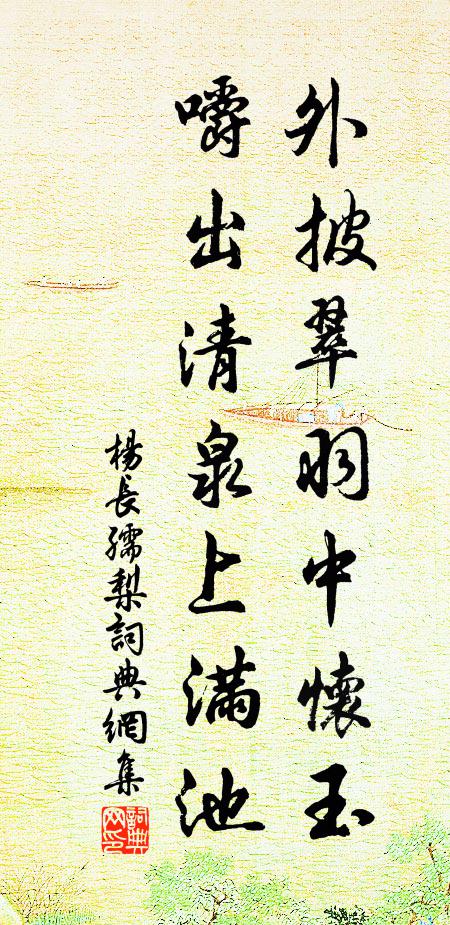 外披翠羽中懷玉
嚼出清泉上滿池
楊長孺梨詞典網集
詞典
网印